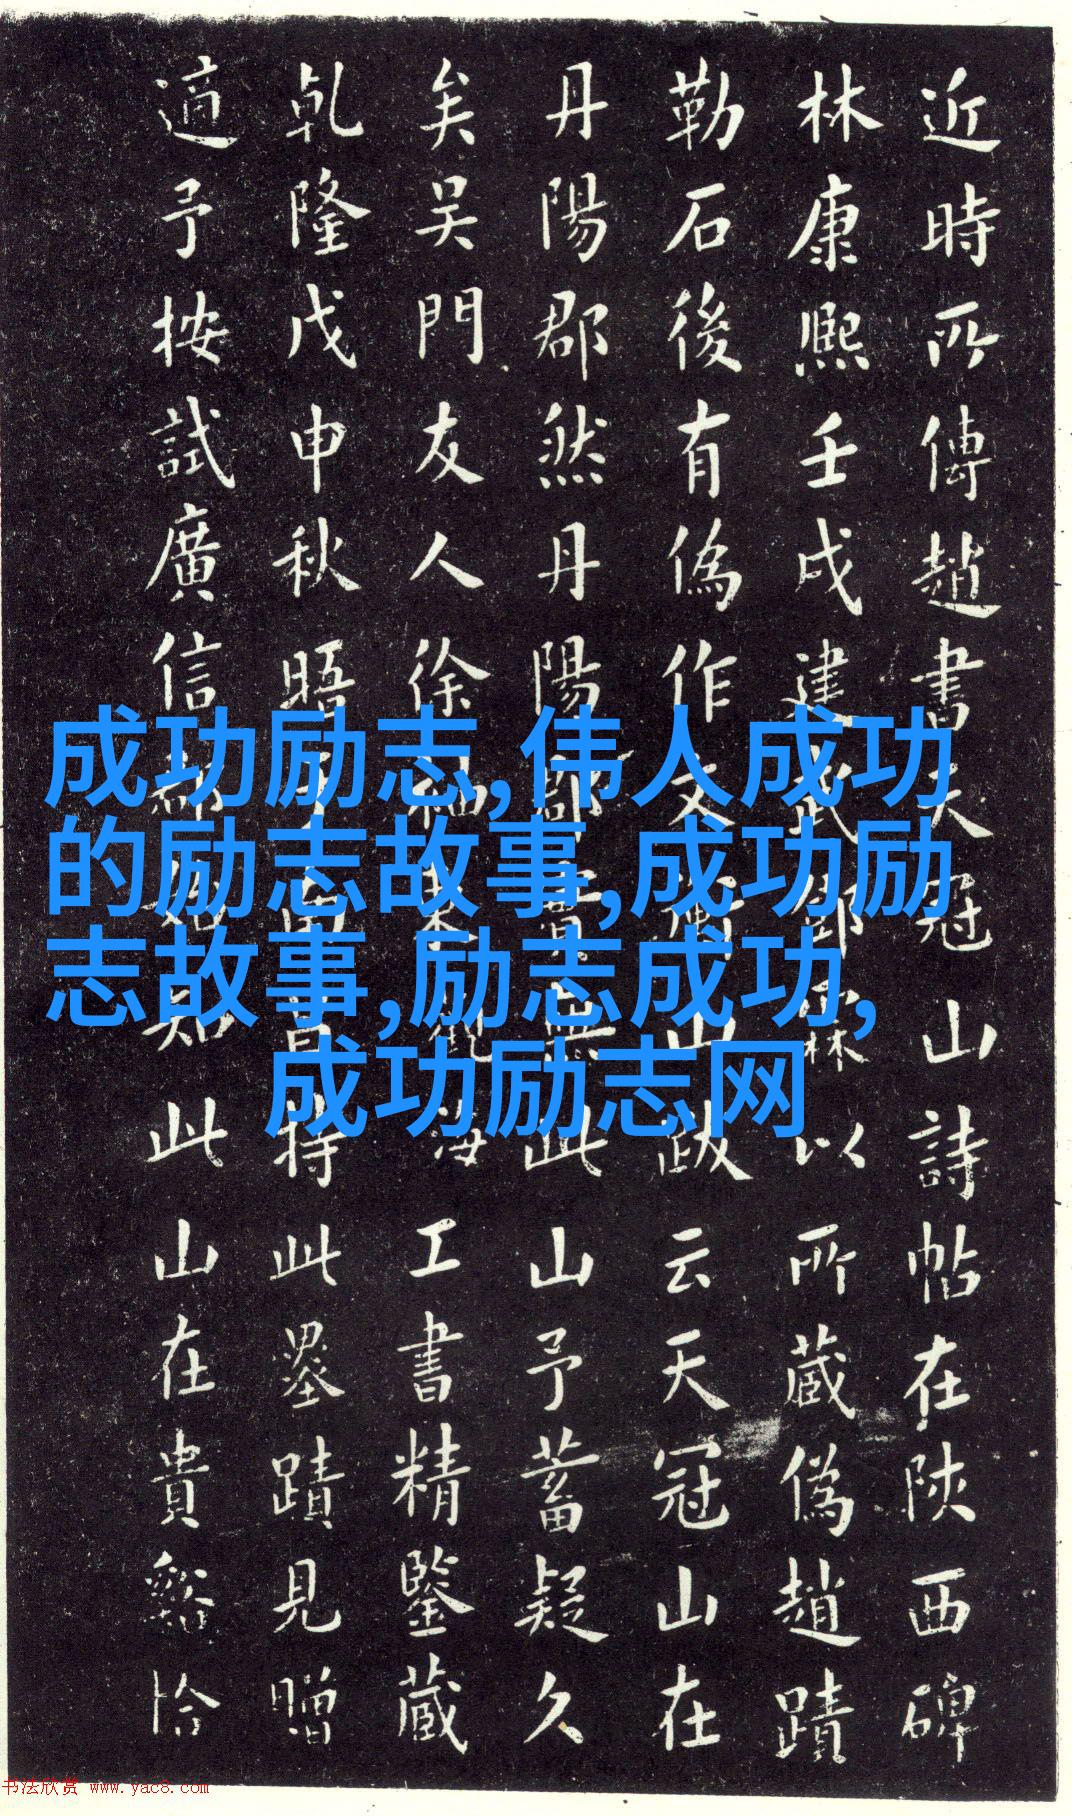 近時所傳趙書天冠山詩帖在陝西碑
林康熙壬戌建武郭霖以所藏偽趙蹟
勒石後有偽作文衡山跋云天冠山在
丹陽郡然丹陽郡實無此山予蓄疑久
矣吴門友人徐觀海工書精鑒藏
乾隆戊申秋晤昌持此墨蹟見贈
適予按試廣信郡始知此山在貴谿恰
成功励志,伟人成功
的励志故事,成功励
志故事,励志成功,
成功励志网
书法欣赏 www.yac8.com